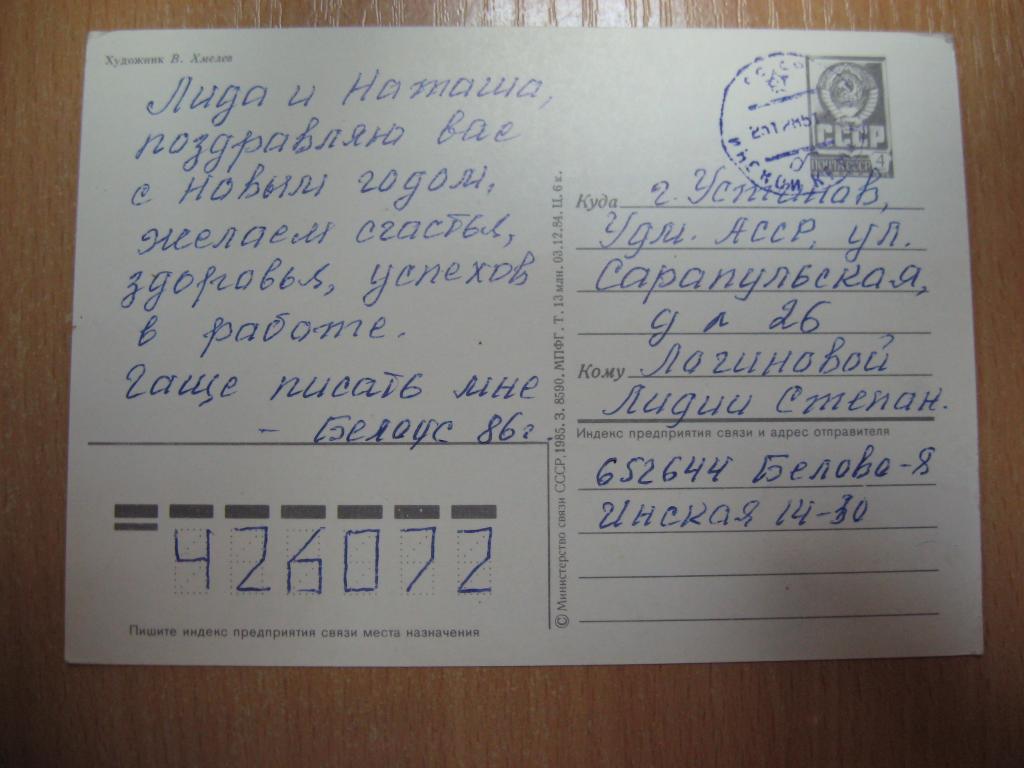 Художник В. Хмелев
Лида и Наташа,
поздравляю вас
с новым годом,
желаем счастья,
здоровья, успехов
в работе.
Чаще писать мне
- Белоус 86г.
СССР
ПОЧТА СССР 4
Куда г. Устинов,
Удм. АССР, ул.
Сарапульская,
д № 26
Кому Логиновой
Лидии Степан.
Индекс предприятия связи и адрес отправителя
652644 Белова-8
Инская 14-30
426072
Пишите индекс предприятия связи места назначения
© Министерство связи СССР, 1985. З. 8590. МПФГ. Т. 13 млн. 03.12.84. Ц. 6 к.